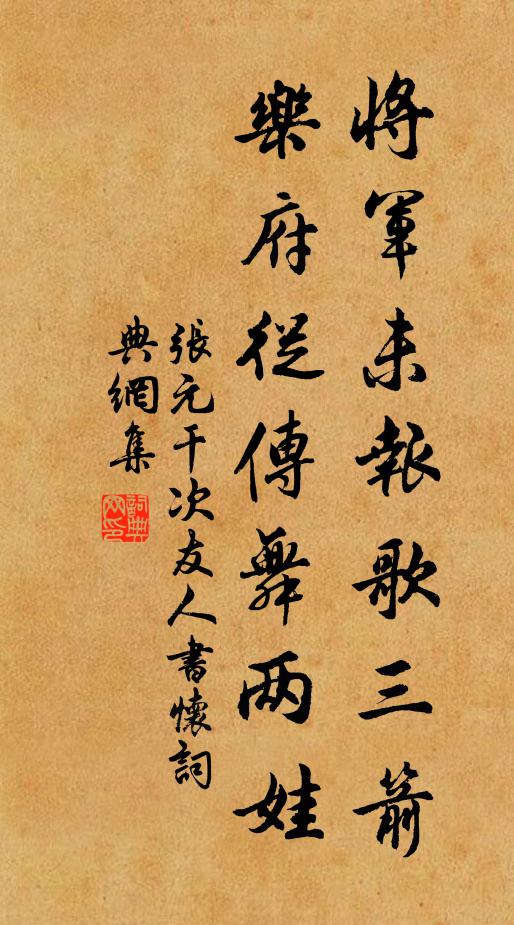 將軍未報歌三箭
樂府從傳舞兩娃
張元干次友人書懷詞
典網集
詞典
网印